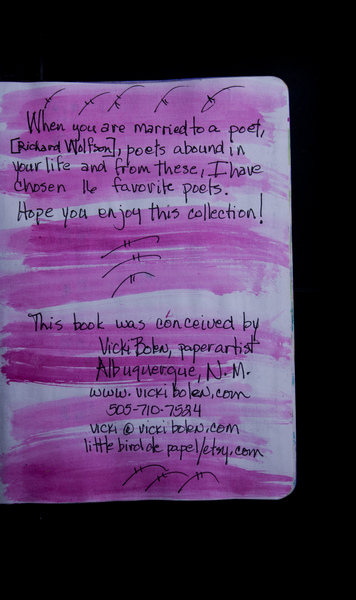 When you are married to a poet,
[Richard Wolfson], poets abound in
your life and from these, I have
chosen 16 favorite poets.
Hope you enjoy this collection!
This book was conceived by
Vicki Bolen, paper artist
Albuquerque, N.M.
www.vickibolen.com
505-710-7524
vicki@vickibolen.com
little bird de papel/etsy.com